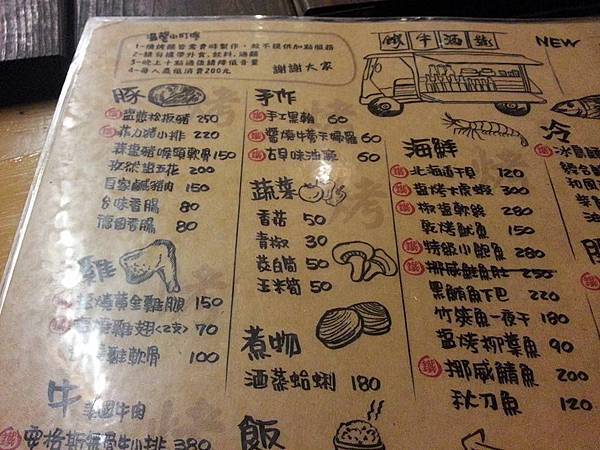 溫馨小叮嚀
1-燒烤類皆需費時製作,故不提供加點服務
2-請勿攜帶外食,飲料,酒類
3-晚上十點過後請降低音量
4-每人最低消費200元
謝謝大家
鐵牛酒號
NEW
豚
鹽蔥松板豬 250
菲力豬小排 220
蒜鹽豬喉頭軟骨 150
玫瑰鹽五花 200
自家鹹豬肉 150
台味香腸 80
德國香腸 80
雞
鹽燒黃金雞腿 150
雞翅<2支> 70
雞軟骨 100
牛
美國牛肉
安格斯無骨牛小排 380
手作
手工黑輪 60
醬燒牛蒡天婦羅 60
古早味油蔥 60
蔬菜
香菇 50
青椒 30
茭白筍 50
玉米筍 50
煮物
酒蒸蛤蜊 180
飯
海鮮
北海道干貝 120
鹽烤大瘋蝦 300
椒鹽軟殼 280
乾烤魷魚 150
特級小鮑魚 280
挪威鮭魚肚 250
黑鮪魚下巴 220
竹筴魚一夜干 180
鹽烤柳葉魚 90
挪威鯖魚 200
秋刀魚 120
冷
冰島
和風